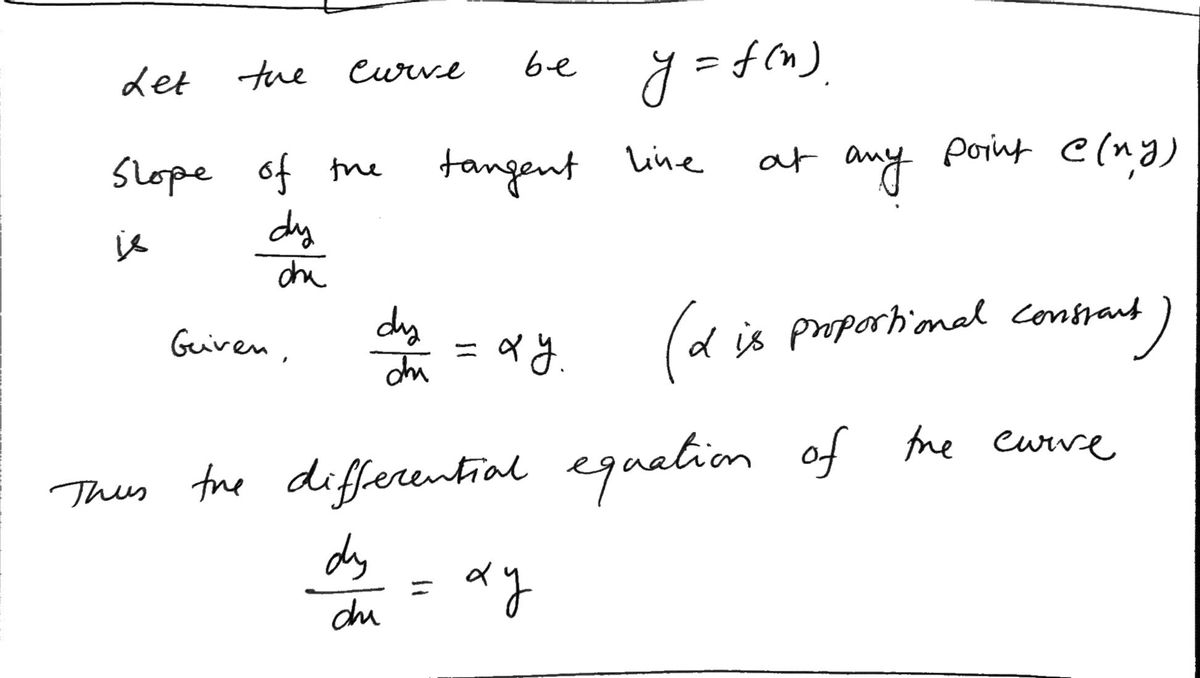 Let the curve be y = f(x).
Slope of the tangent line at any point C(x,y)
is dy/dx
Given, dy/dx = αy. (α is proportional constant)
Thus the differential equation of the curve
dy/dx = αy